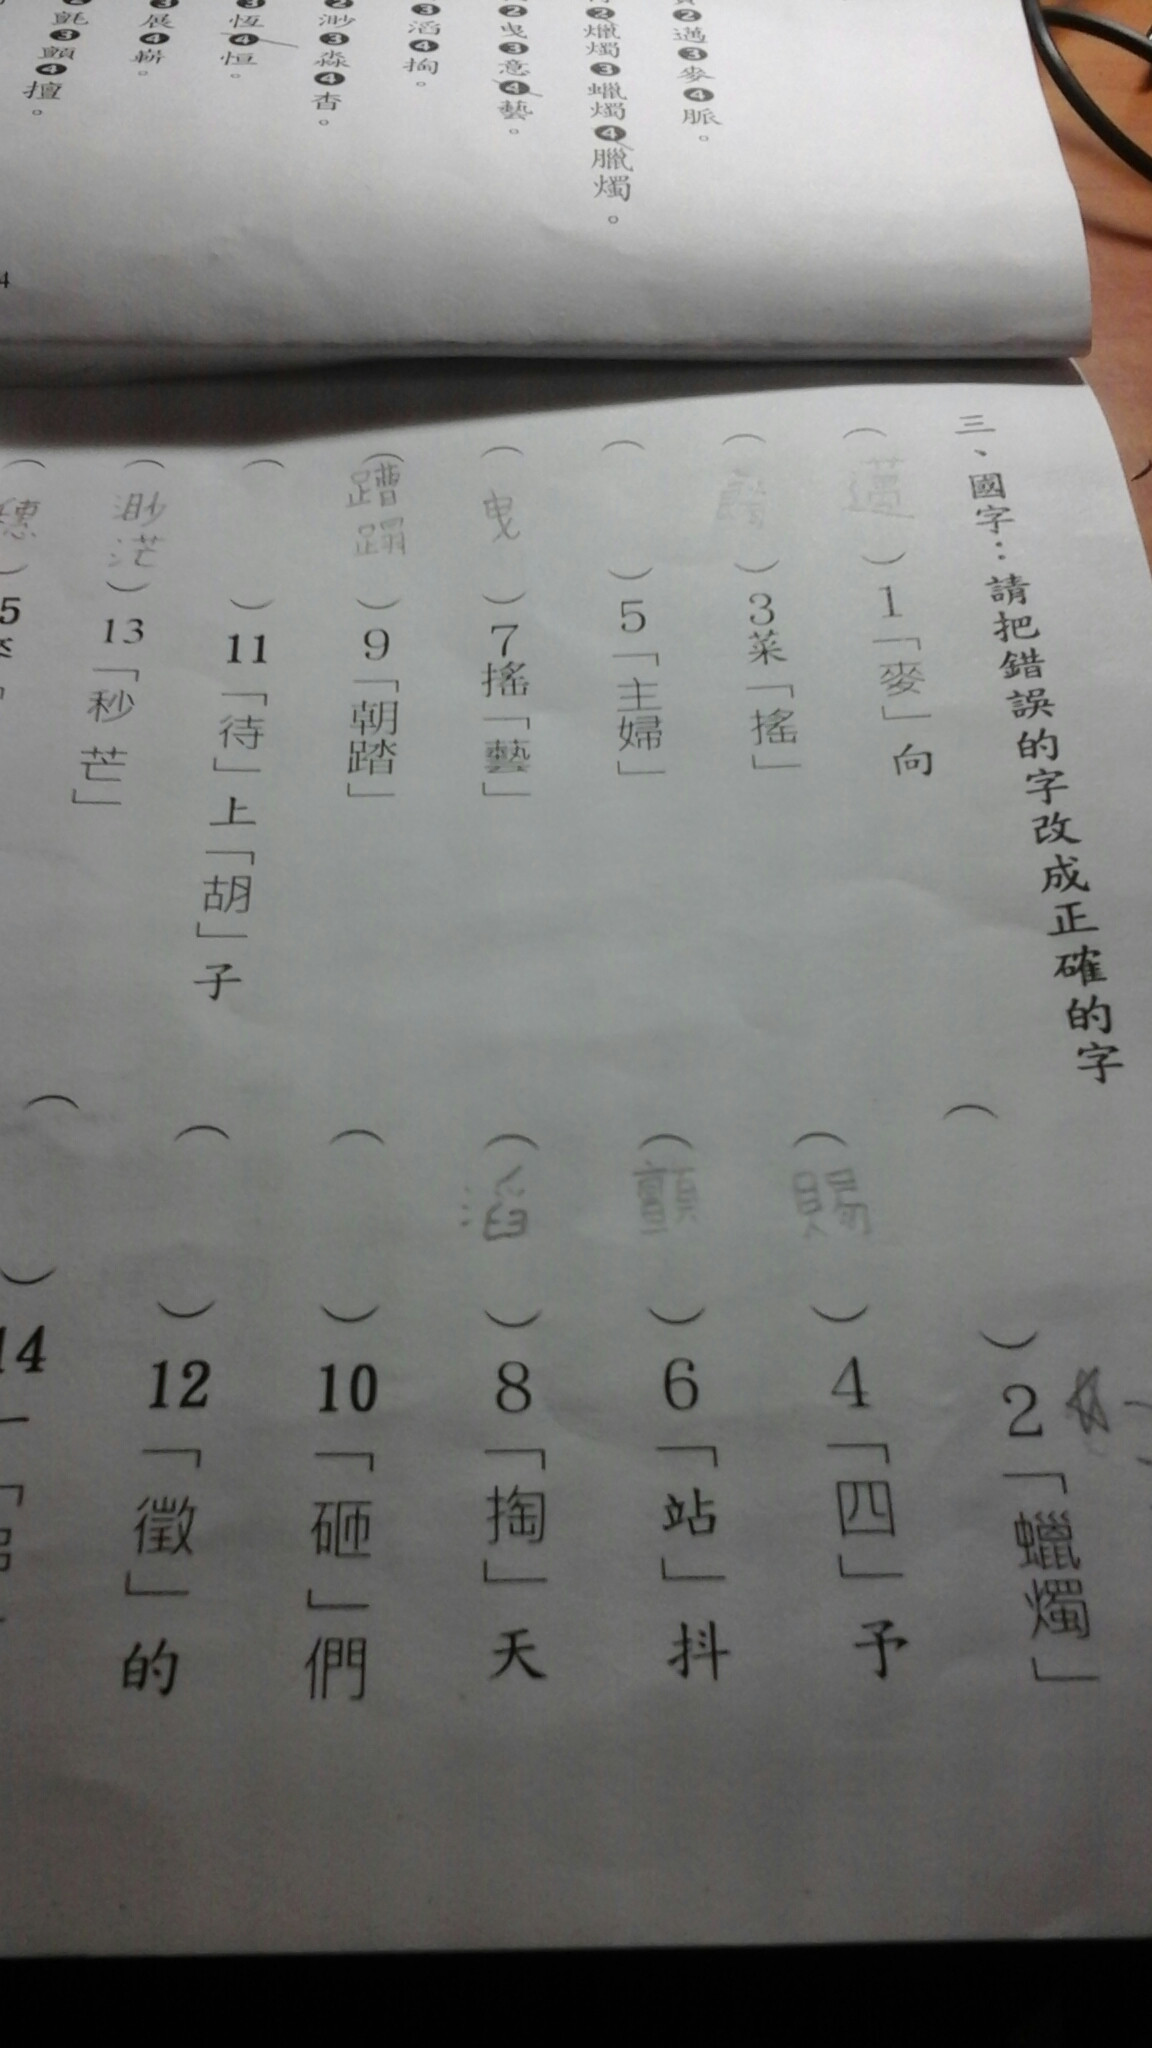 ❷邁❸麥❹脈。
❷爉燭❸蠟燭❹臘燭。
❷曳❸意❹藝。
❸滔❹掏。
渺❸淼❹杳。
❸恆❹恒。
❸展❹嶄。
氈❸顫❹擅。
4
三、國字：請把錯誤的字改成正確的字
（邁）1「麥」向
（　　）2「蠟燭」
（　　）3菜「搖」
（賜）4「四」予
（　　）5「主婦」
（顫）6「站」抖
（曳）7搖「藝」
（滔）8「掏」天
（蹧蹋）9「朝踏」
（　　）10「砸」們
（　　）11「待」上「胡」子
（　　）12「徵」的
（渺茫）13「秒芒」
（　　）14「
（穗）5